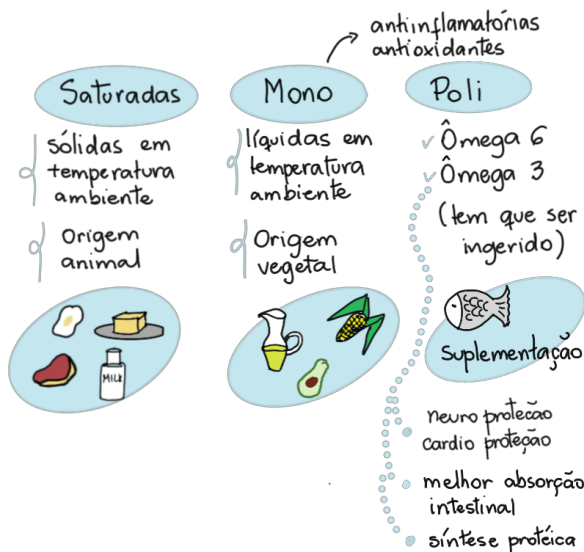 antiinflamatórias
antioxidantes
Saturadas
sólidas em
temperatura
ambiente
Origem
animal
MILK
Mono
líquidas em
temperatura
ambiente
Origem
vegetal
Poli
Ômega 6
Ômega 3
(tem que ser
ingerido)
Suplementação
neuro proteção
cardio proteção
melhor absorção
intestinal
síntese protéica